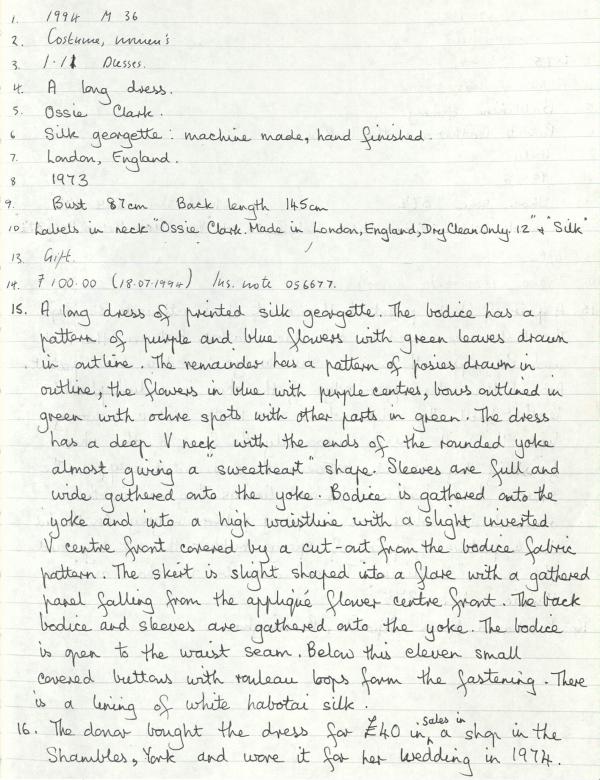 1. 1994 M 36
2. Costume, women's
3. 1.11 Dresses.
4. A long dress.
5. Ossie Clark.
6 Silk georgette : machine made, hand finished.
7. London, England.
8 1973
9. Bust 87cm Back length 145cm
10 Labels in neck "Ossie Clark. Made in London, England, Dry Clean Only. 12" & "Silk"
13. Gift.
14. £100.00 (18.07.1994) Ins. note 056677.
15. A long dress of printed silk georgette. The bodice has a
pattern of purple and blue flowers with green leaves drawn
in outline. The remainder has a pattern of posies drawn in
outline, the flowers in blue with purple centres, bows outlined in
green with ochre spots with other parts in green. The dress
has a deep V neck with the ends of the rounded yoke
almost giving a "sweetheart" shape. Sleeves are full and
wide gathered onto the yoke. Bodice is gathered onto the
yoke and into a high waistline with a slight inverted
V centre front covered by a cut-out from the bodice fabric
pattern. The skirt is slight shaped into a flare with a gathered
panel falling from the appliqué flower centre front. The back
bodice and sleeves are gathered onto the yoke. The bodice
is open to the waist seam. Below this eleven small
covered buttons with rouleau loops form the fastening. There
is a lining of white habotai silk.
16. The donor bought the dress for £40 in sales in a shop in the
Shambles, York and wore it for her wedding in 1974.